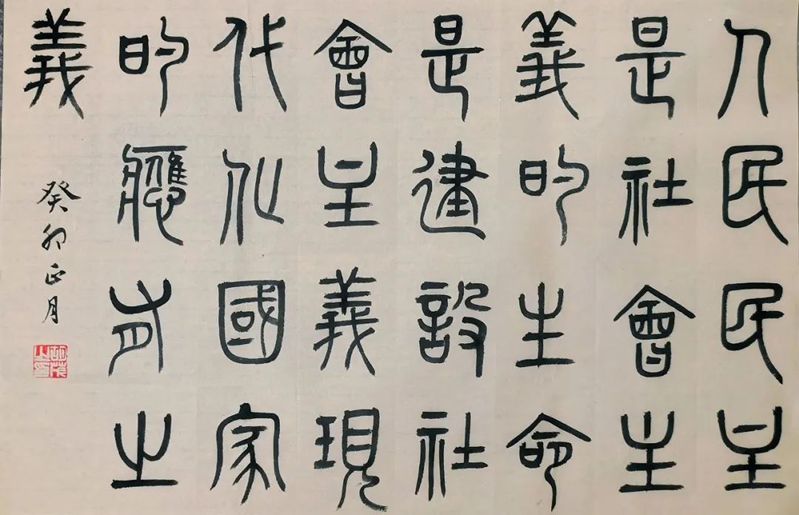 人民民主
是社會主
義的生命
是建設社
會主義現
代化國家
的應有之
義
癸卯正月